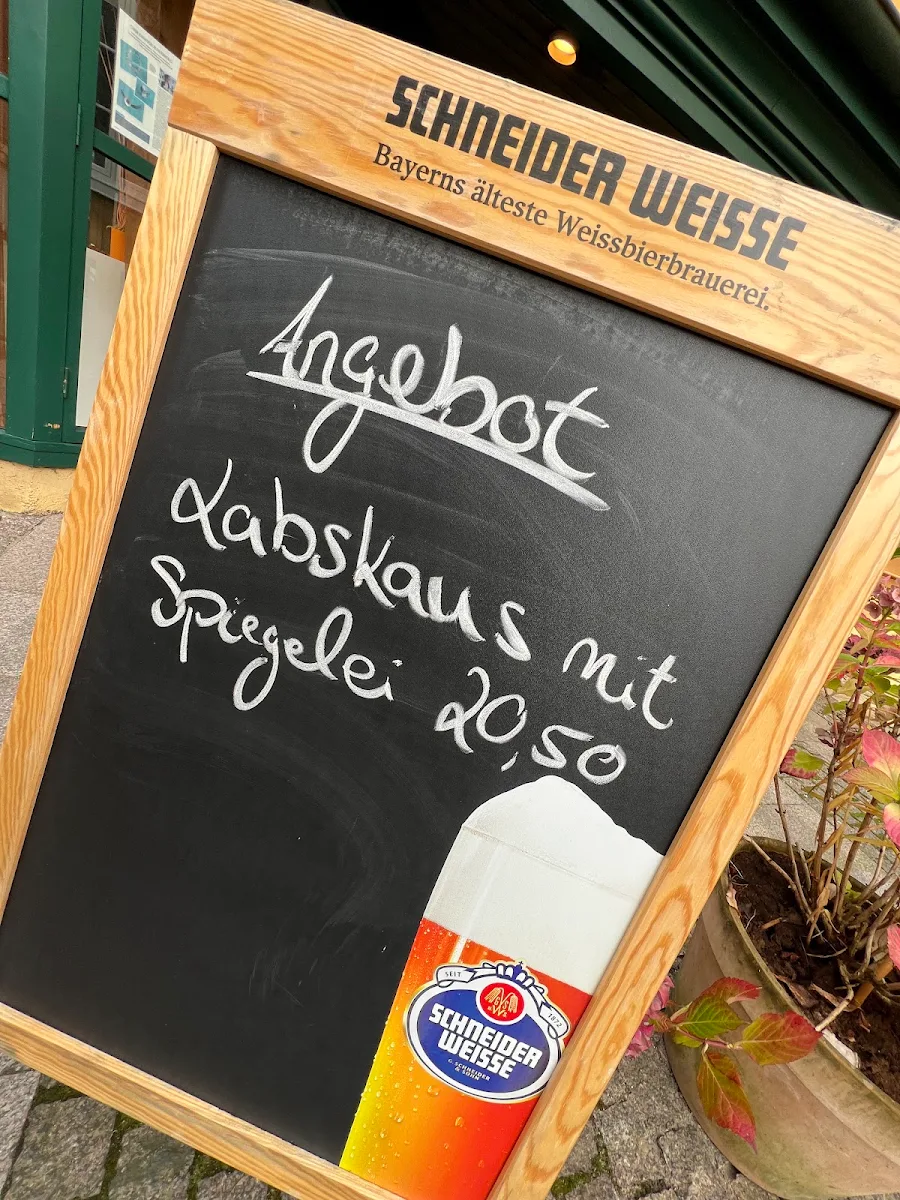 SCHNEIDER WEISSE
Bayerns älteste Weissbierbrauerei.
Angebot
Labskaus mit
Spiegelei 20,50
SEIT
1872
SCHNEIDER
WEISSE
G. SCHNEIDER
& SOHN